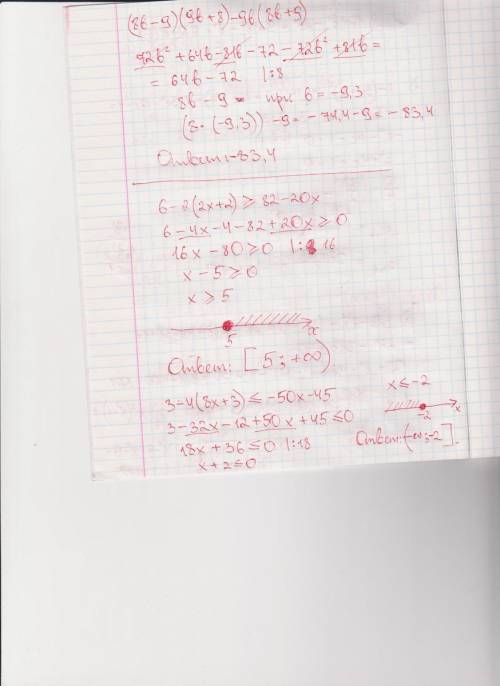 (8b-9)(9b+8)-9b(8b+9)
72b² +64b-81b-72-72b² +81b=
= 64b-72 |:8
8b-9 = при b=-9,3
(8·(-9,3))-9=-74,4-9=-83,4
Ответ:-83,4
6-2(2x+2)≥82-20x
6-4x-4-82+20x≥0
16x-80≥0 |:16
x-5≥0
x≥5
5 x
Ответ: [5;+∞)
3-4(8x+3)≤-50x-45
3-32x-12+50x+45≤0
18x+36≤0 |:18
x+2≤0
x≤-2
-2 x
Ответ:(-∞;-2].